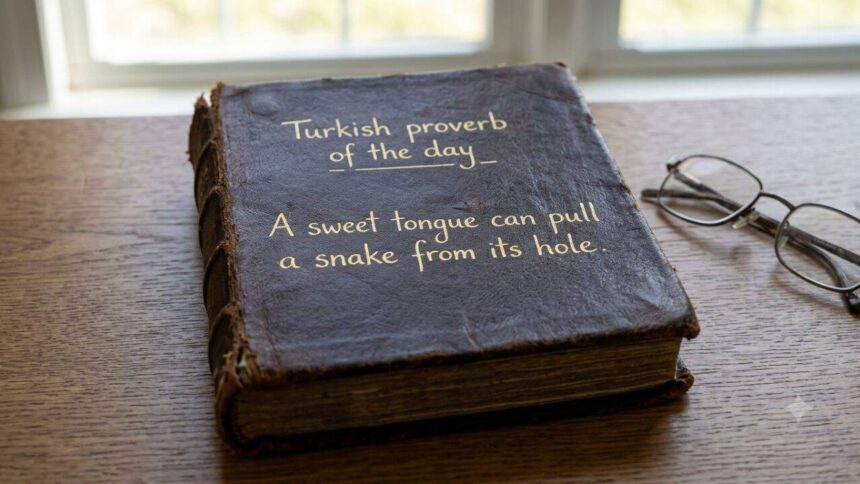 Turkish proverb
of the day
A sweet tongue can pull
a snake from its hole.